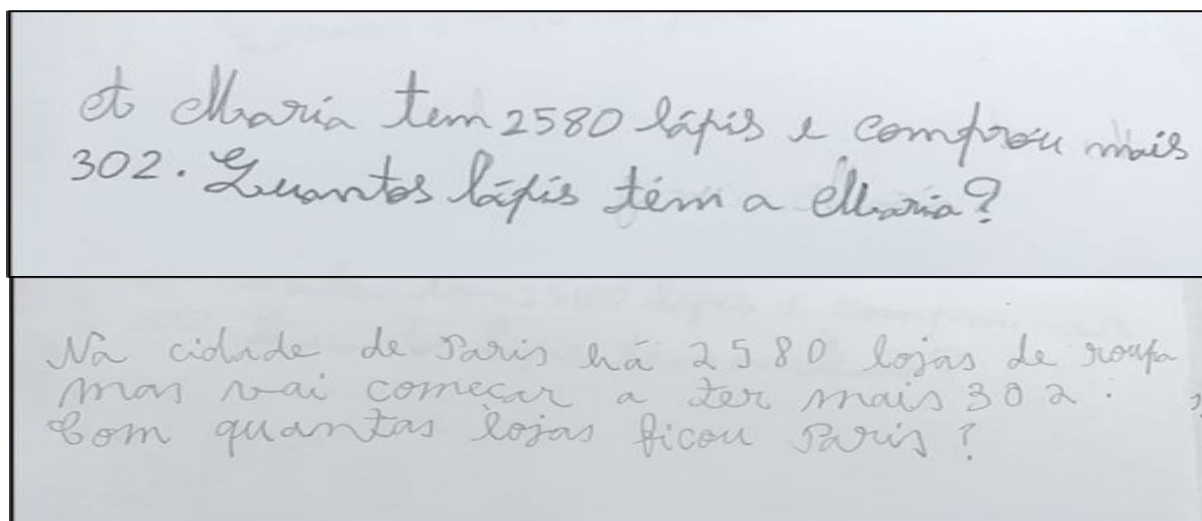 A Maria tem 2580 lápis e comprou mais
302. Quantos lápis têm a Maria?
Na cidade de Paris há 2580 lojas de roupa
mas vai começar a ter mais 302.
Com quantas lojas ficou Paris?